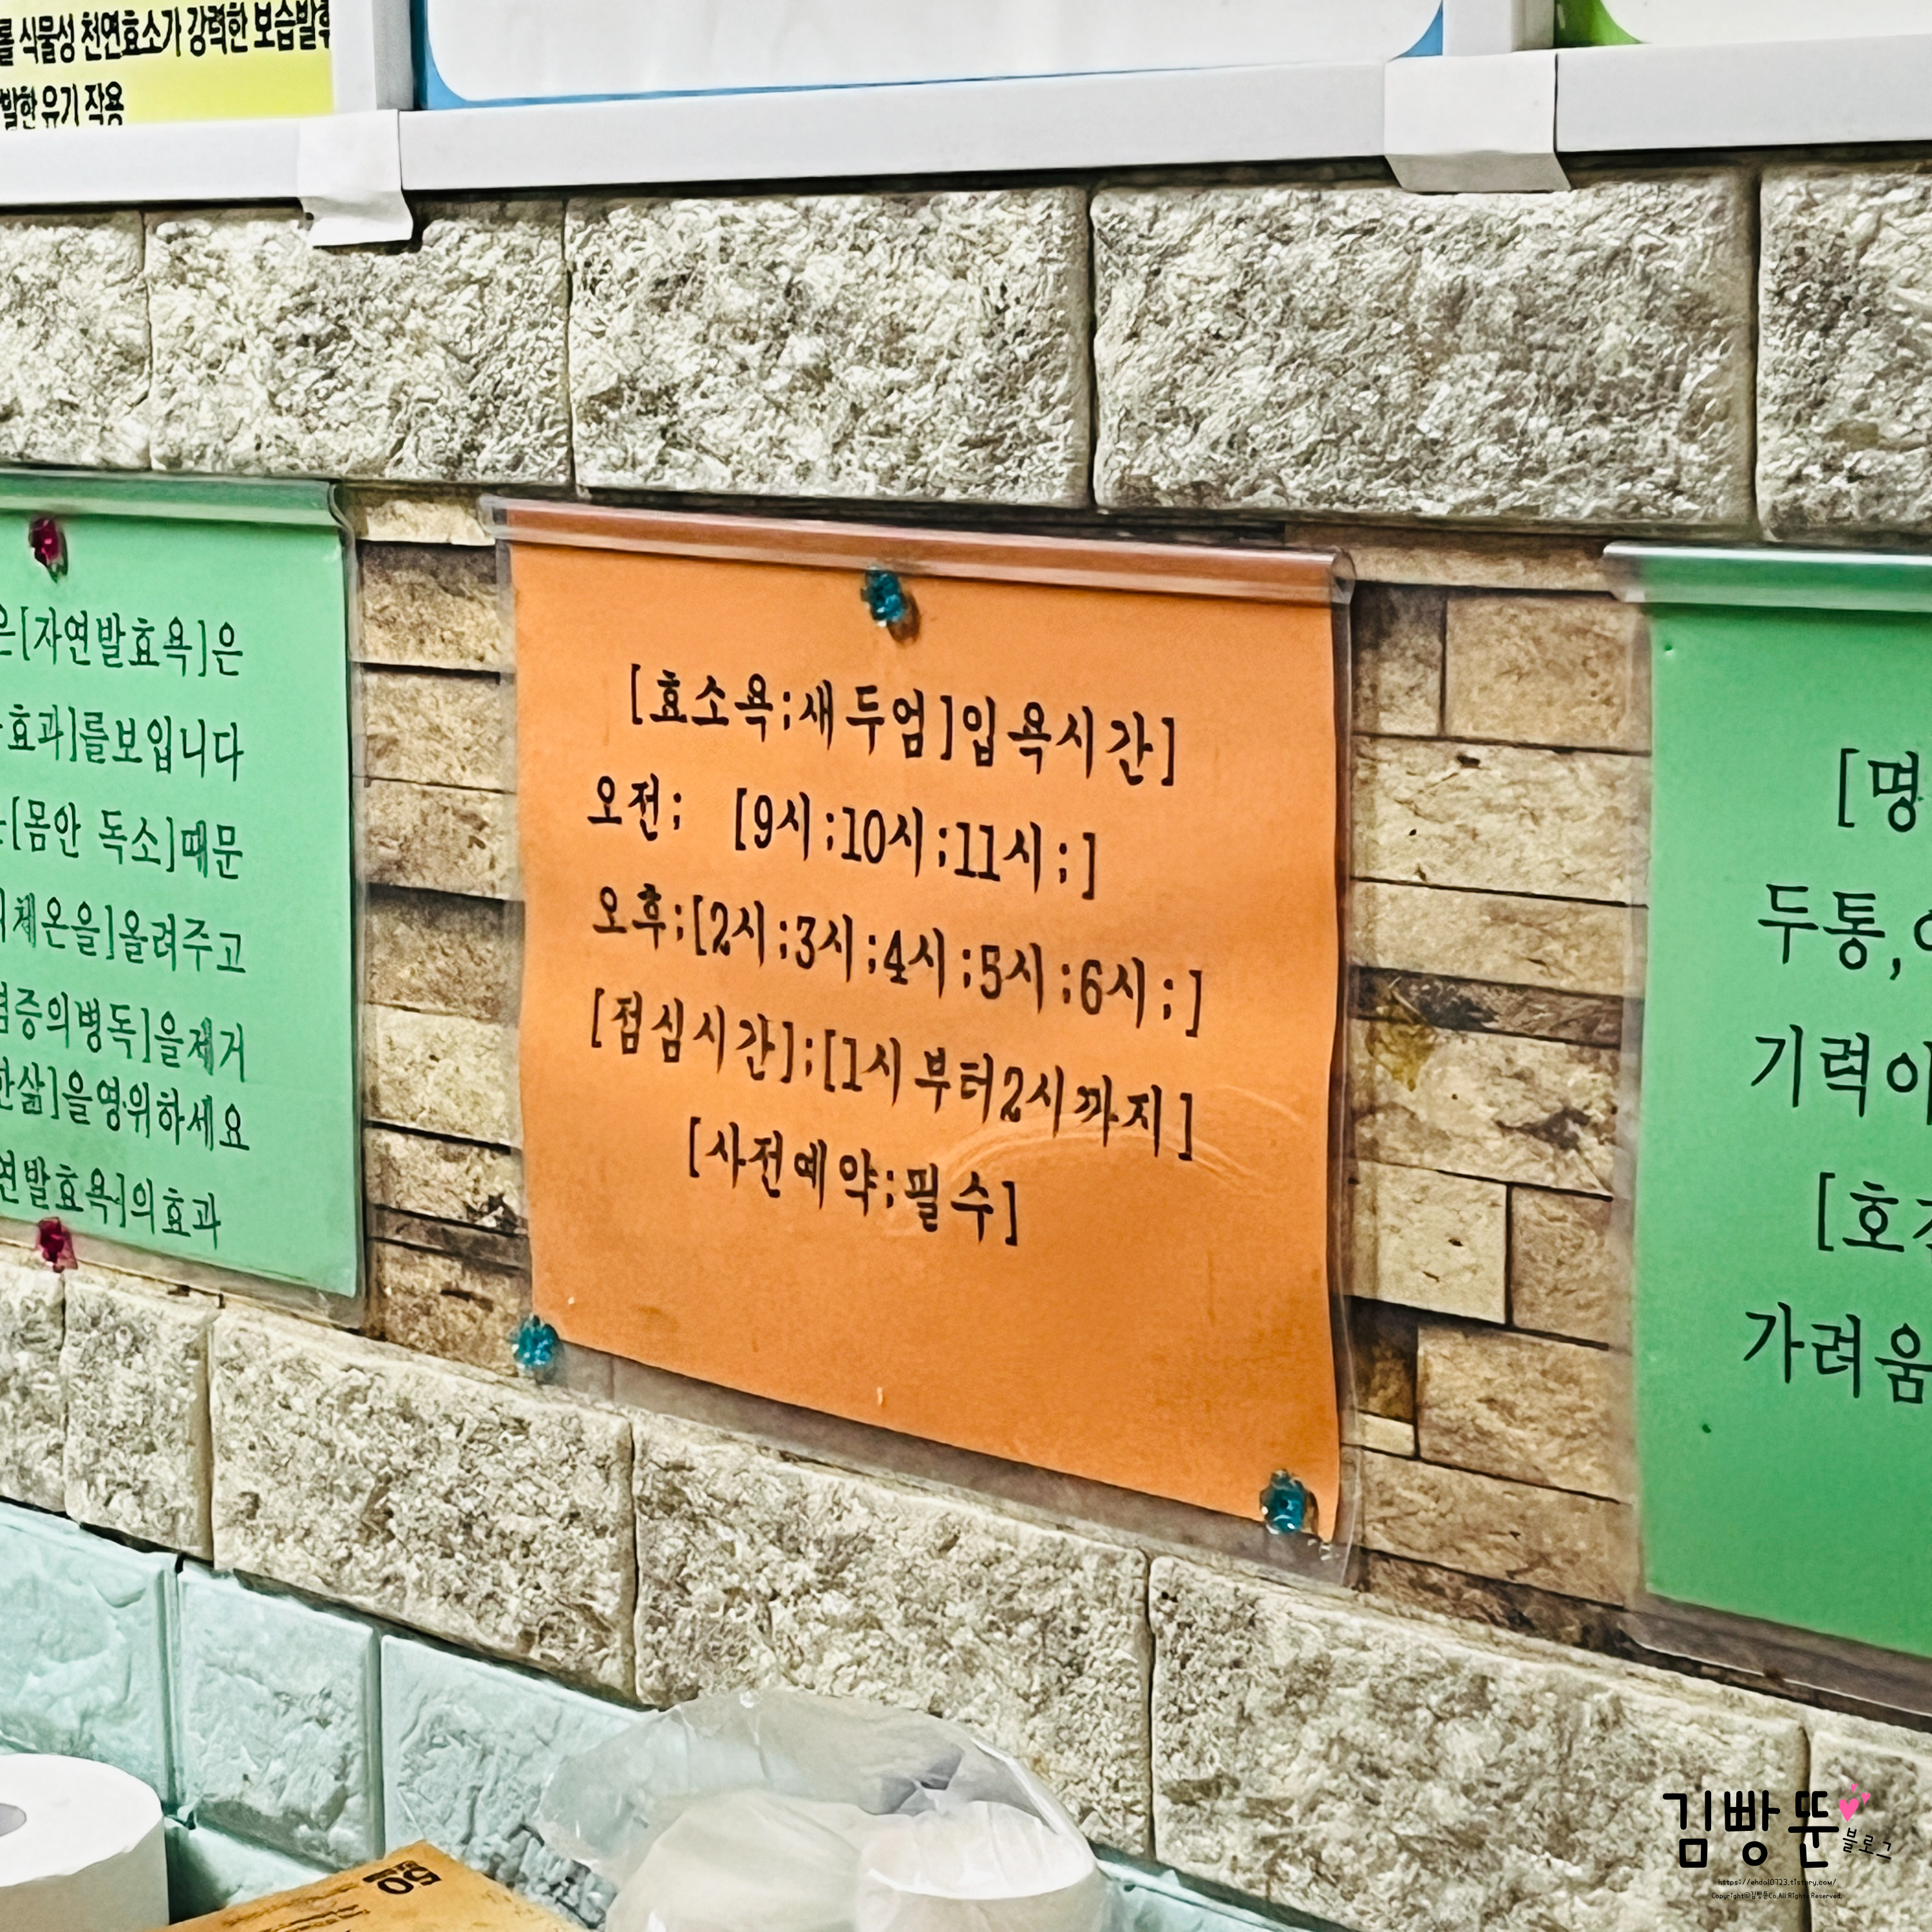 식물성 천연효소가 강력한 보습발휘
발한 유기 작용
은[자연발효욕]은
효과]를보입니다
[몸안 독소]때문
체온을]올려주고
염증의병독]을제거
한삶]을영위하세요
연발효욕]의효과
[효소욕;새두엄]입욕시간]
오전; [9시;10시;11시;]
오후;[2시;3시;4시;5시;6시;]
[점심시간];[1시부터2시까지]
[사전예약;필수]
[명
두통,
기력이
[호
가려움
50
김빵뚠
블로그
https://ehdal0723.tistory.com/
Copyright@김빵뚠Co.All Rights Reserved.